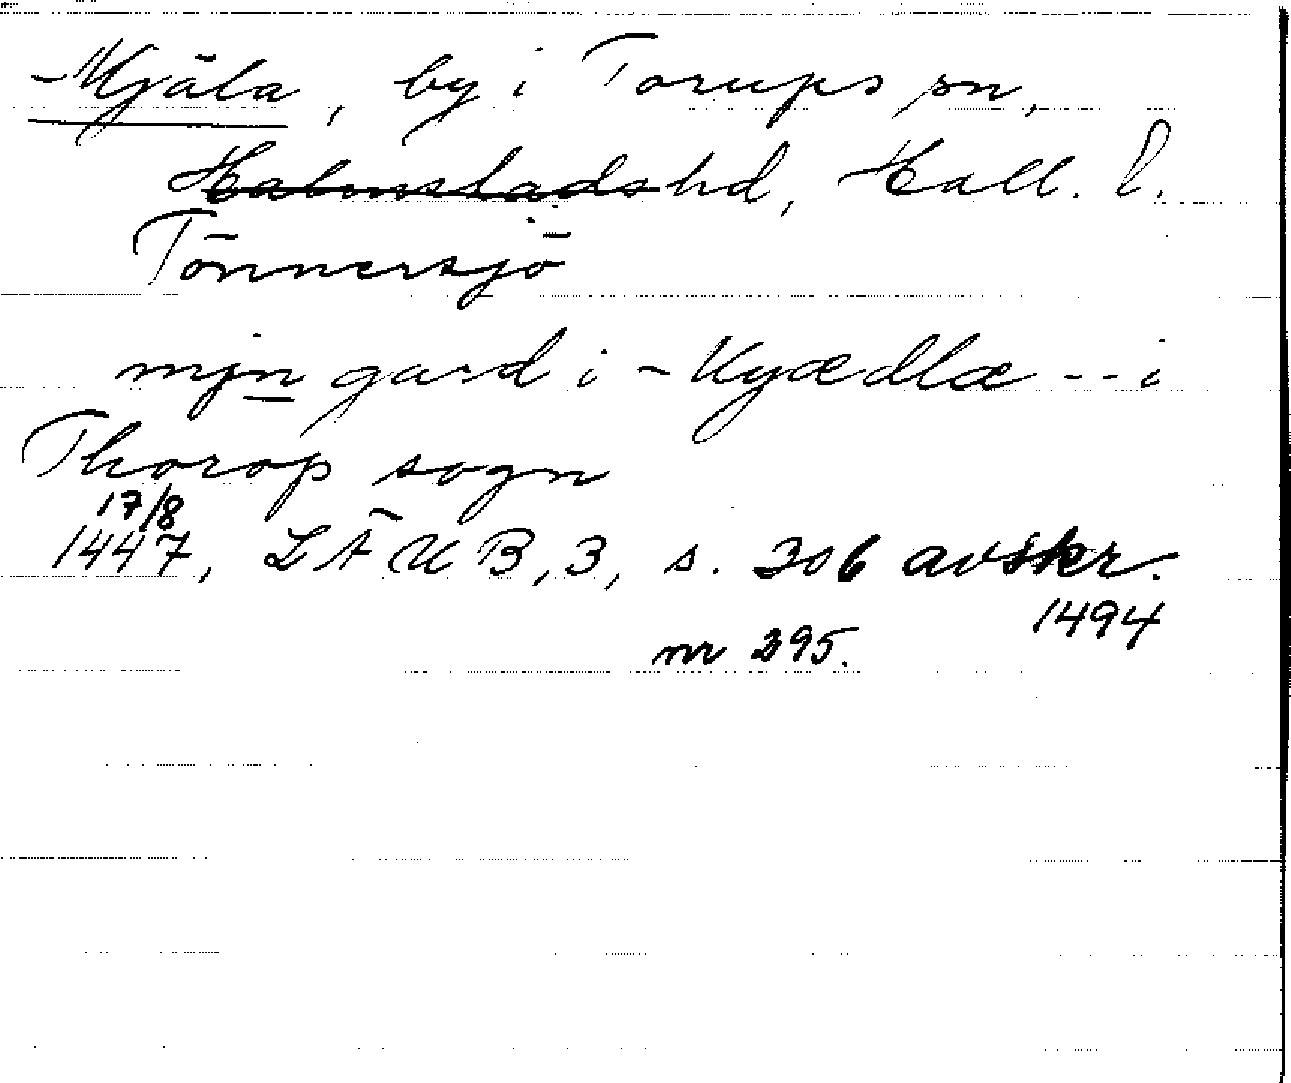 Mjäla, by i Torups sn,
Halmstads hd, Hall. l.
Tönnersjö
mjn gard i Myædlæ -- i
Thorop sogn
17/8
1447, LÄUB, 3, s. 306 avskr.
1494
nr 395.